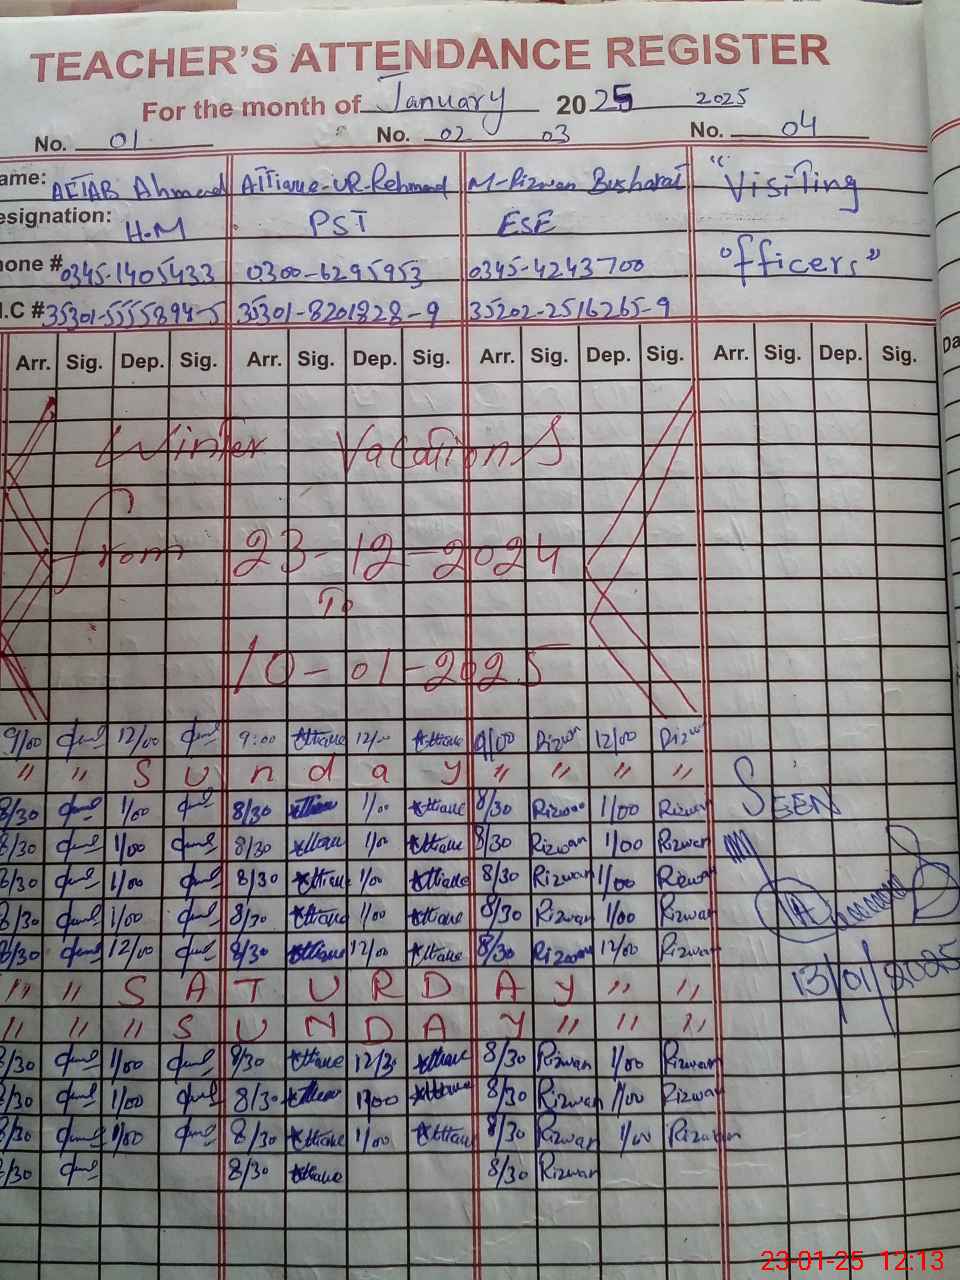 TEACHER'S ATTENDANCE REGISTER
For the month of January 2025 2025
No. 01 No. 02 03 No. 04
ame: AFTAB Ahmad ATTique-UR-Rehmad M-Rizwan Busharat "Visiting
esignation: H.M PST ESE
hone # 0345-1405433 0300-6295953 0345-4243700 Officers"
I.C # 35301-5555894-5 35301-8201828-9 35202-2516265-9
Arr. Sig. Dep. Sig. Arr. Sig. Dep. Sig. Arr. Sig. Dep. Sig. Arr. Sig. Dep. Sig. Da
Winter Vacations
from 23-12-2024
To
10-01-2025
9/00 12/00 9:00 Attique 12/00 Attique 9/00 Rizwan 12/00 Rizwan
" " S U n d a y " " " "
8/30 1/00 8/30 1/00 Attique 8/30 Rizwan 1/00 Rizwan SEEN
8/30 1/00 8/30 Attique 1/00 Attique 8/30 Rizwan 1/00 Rizwan
8/30 1/00 8/30 Attique 1/00 Attique 8/30 Rizwan 1/00 Rizwan
8/30 1/00 8/30 Attique 1/00 Attique 8/30 Rizwan 1/00 Rizwan
8/30 12/00 8/30 Attique 12/00 Attique 8/30 Rizwan 12/00 Rizwan
" " S A T U R D A Y " " 13/01/2025
" " " S U N D A Y " " "
8/30 1/00 8/30 Attique 12/30 Attique 8/30 Rizwan 1/00 Rizwan
8/30 1/00 8/30 Attique 1/00 Attique 8/30 Rizwan 1/00 Rizwan
8/30 1/00 8/30 Attique 1/00 Attique 8/30 Rizwan 1/00 Rizwan
8/30 8/30 Attique 8/30 Rizwan
23-01-25 12:13